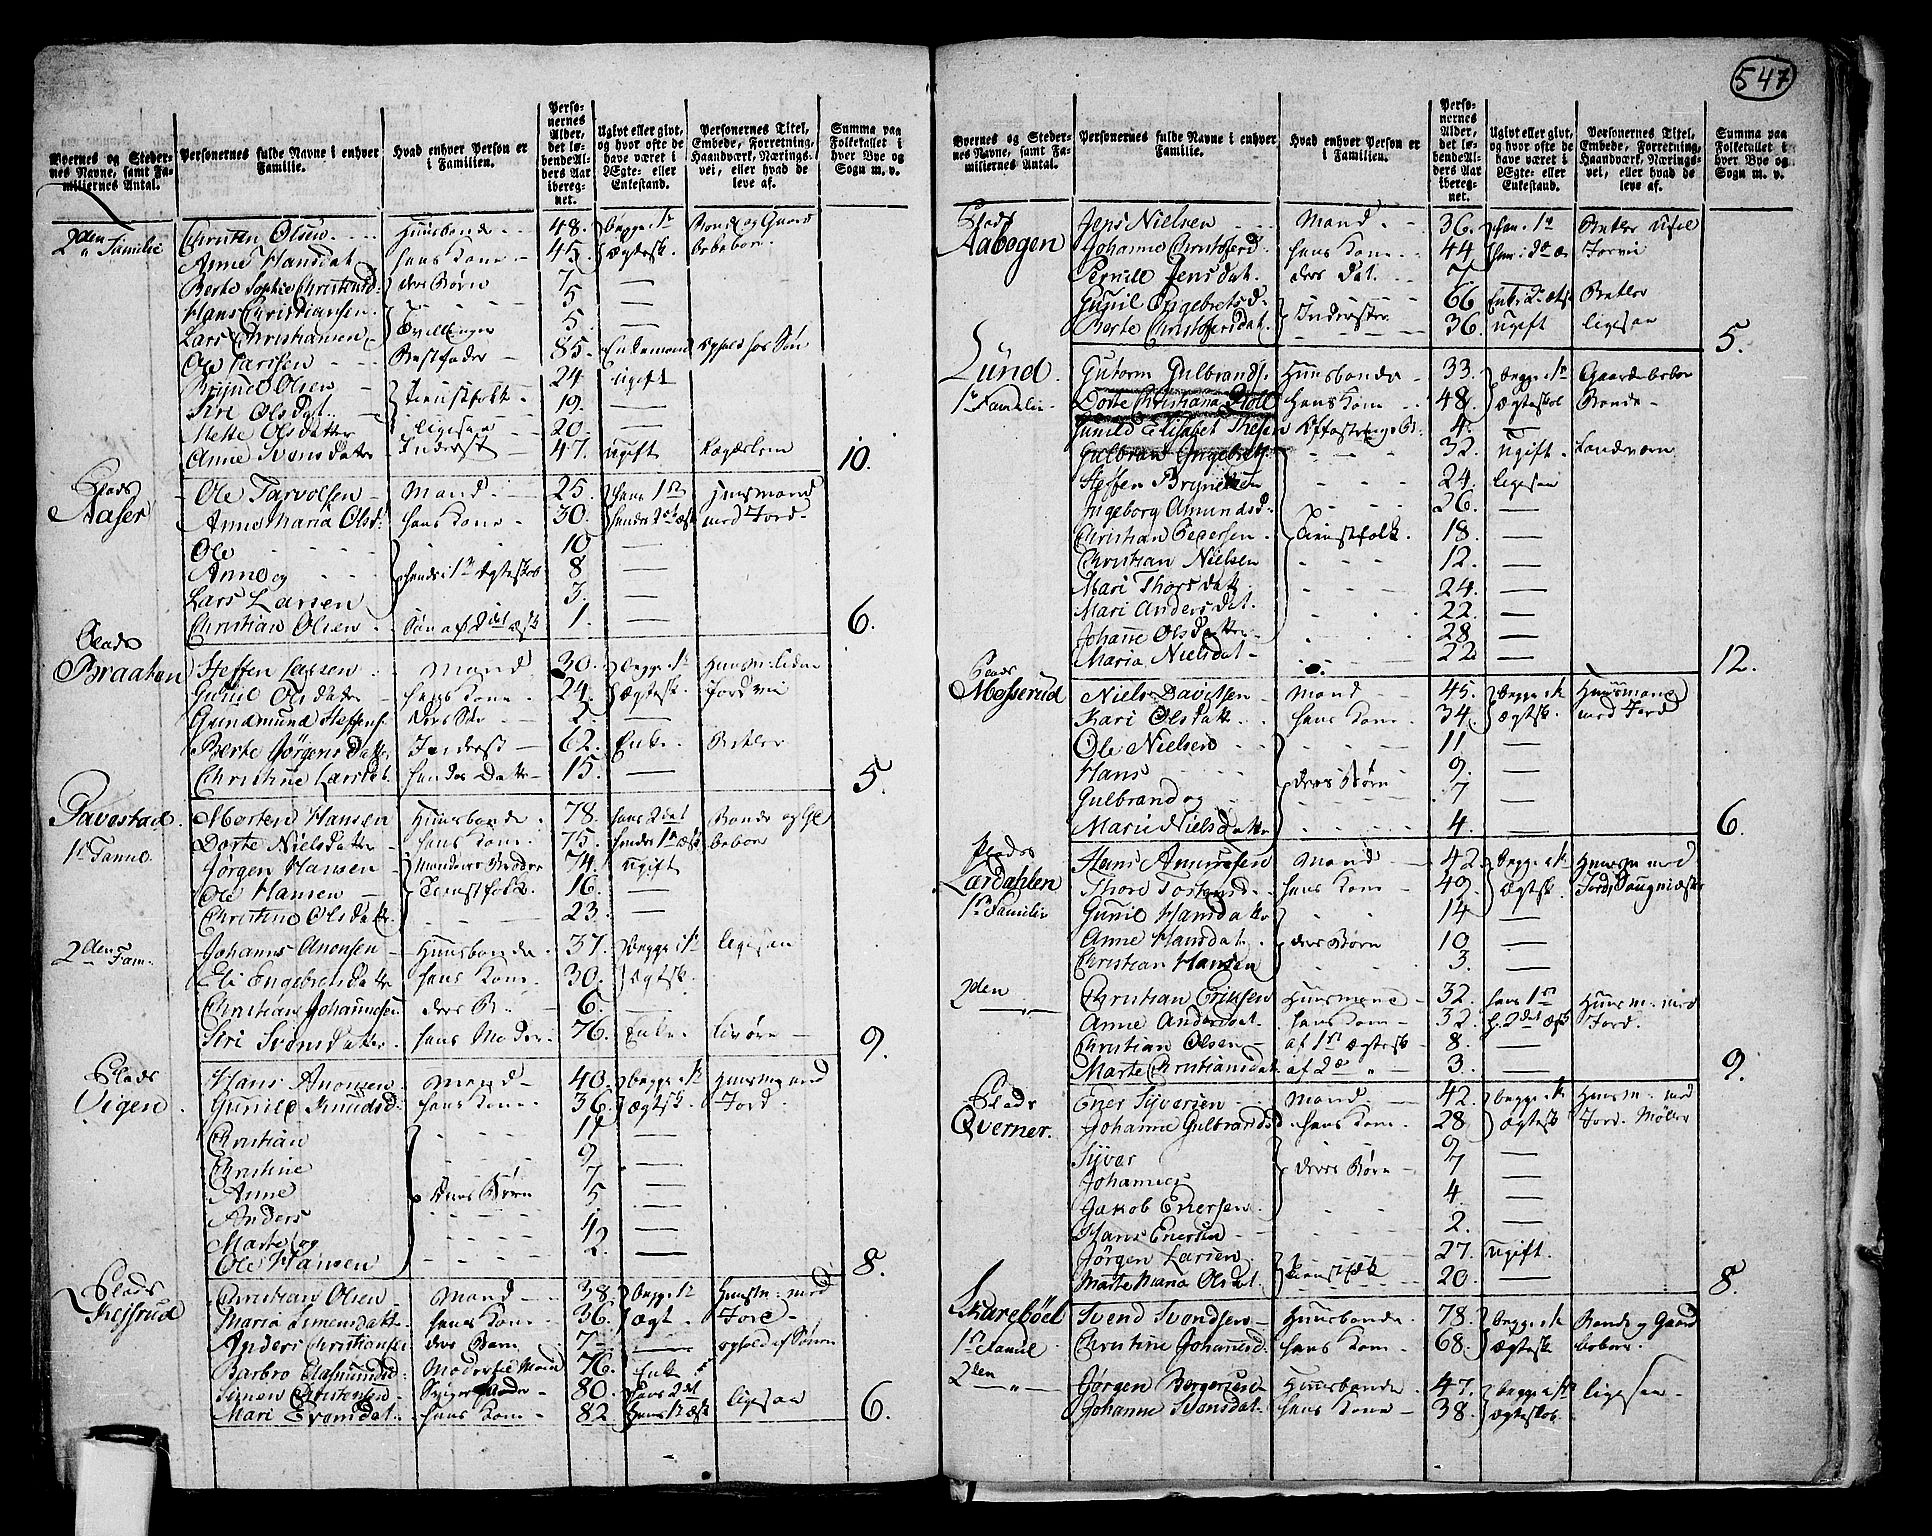 547
Byernes og Stedernes Navne, samt Familiernes Antal.
Personernes fulde Navne i enhver Familie.
Hvad enhver Person er i Familien.
Personernes Alder, det løbende Alders Aar iberegnet.
Ugivt eller givt, og hvor ofte de have været i Ægte- eller Enkestand.
Personernes Titel, Embede, Forretning, Haandværk, Næringsvei, eller hvad de leve af.
Summa paa Folketallet i hver Bye og Sogn m. v.
2den Familie Christen Olsen Huusbonde 48. begge 1te Bonde og Gaard
Anne Hansdat. hans Kone 45. Ægtesk. beboer
Berte Sophie Christensd. deres Børn 7 —
Hans Christiansen 5 —
Lars Christiansen Tvillinger 5. —
Ole Larssen Bestfader 85. Enkemand Ophold hos Søn
Brynild Olsen 24 ugift
Siri Olsdat. Tienestfolk 19. —
Mette Olsdatter ligesaa 20. —
Anne Svensdatter Inderst 47. ugift 10.
Plads Aaser Ole Tarvolsen Mand 25. hans 1te Huusmand
Anne Maria Olsd. hans Kone 30. hendes 2det Ægt. med Jord.
Ole 10 —
Anne og hendes i 1te Ægteskab 8 —
Lars Larsen 3. —
Christian Olsen Søn af 2det Ægtsk 1. — 6.
Plads Braaten Steffen Larsen Mand 30. begge 1te Huusm. uden
Gunil Olsdatter hans Kone 24. Ægtesk. Jord
Gundmund Steffens. deres Søn 2. —
Berte Jørgensdatter Inderst 62. Enke
Christine Larsdat. hendes Datter 15. — 5
Pavestad Morten Hansen Huusbonde 78. hans 2det Bonde og G.
1te Familie Dorte Nielsdatter hans Kone 75. hendes 1te Ægtsk beboer
Jørgen Hansen Mandens Broder 74. ugift
Ole Hansen Tienestfolk. 16. —
Christine Olsdatter 23. —
2den Fam. Johannes Anonsen Huusbonde 37. begge 1te ligesaa
Eli Engebretsdatter hans Kone 30. Ægtsk.
Christian Johannesen deres B. 6. —
Siri Svensdatter hans Moder 76. Enke 9.
Plads Vigen Hans Anonsen Mand 40. begge 1te Huusm. med
Gunild Knudsd. hans Kone 36. Ægtesk. Jord.
Christian 11 —
Christine 9 —
Anne deres Børn 7 —
Anders 5 —
Marte og 4 —
Ole Hansen 2. — 8.
Plads Christian Olsen Mand 38. begge 1te Huusm: med
Maria Simensdatter hans Kone 36. Ægt. Jord
Anders Christiansen deres Barn 7 — ophold af Sønnen
Barbro Moder til Mand 76. Enke
Simen Christensen Svigerfader 80. hans 2det ligesaa
Mari Evensdat. hans Kone 82 hans 1te Ægtsk 6.
Byernes og Stedernes Navne, samt Familiernes Antal.
Personernes fulde Navne i enhver Familie.
Hvad enhver Person er i Familien.
Personernes Alder, det løbende Alders Aar iberegnet.
Ugivt eller givt, og hvor ofte de have været i Ægte- eller Enkestand.
Personernes Titel, Embede, Forretning, Haandværk, Næringsvei, eller hvad de leve af.
Summa paa Folketallet i hver Bye og Sogn m. v.
Plads Aabogen Jens Nielsen Mand 36. han 1te
Johanne Christoferd. hans Kone 44
Pernille Jensdat. deres Dat. 7 —
Gunil Engebretsd. Inderster 66
Berte Christofersdat. 36. ugift ligesaa 5.
Lund Gutorm Gulbrands. Huusbonde 33. begge 1te Gaardbeboer
1te Familie Dorte Christiana Stoll hans Kone 48. Ægteskab Bonde
Gunild Elisabet 4. —
Gulbran Ingebrets. 32. ugift Landværn
Steffen Brynildsen 24. ligesaa
Ingeborg Amundsd. 26. —
Christian Pedersen Tienestfolk. 18. —
Christian Nielsen 12. —
Mari Thorsdatt. 24. —
Mari Andersdat. 22. —
Johanne Olsdatter 28 —
Maria Nielsdat. 22 — 12.
Plads Messerud Niels Davidsen Mand 45. begge 1te Huusmand
Kari Olsdatt. hans Kone 34. Ægtesk. med Jord
Ole Nielsen 11 —
Hans deres Børn 9. —
Gulbrand og 7 —
Marie Nielsdatter 4. — 6.
Plads Lærdahlen Hans Amundsen Mand 42. begge 1te Huusm med
1te Familie Thore Torstensd. hans Kone 49. Ægtesk. Jord,
Gunil Hansdatter 14 —
Anne Hansdat. deres Børn 10 —
Christian Hansen 3. —
2den Christian Ericksen Huusmand 32. hans 1te Huusm. med
Anne Andersdat. hans Kone 32. h. 2det Ægtsk Jord.
Christian Olsen af 1te Ægtesk 8. —
Marte Christiansdat. af 2de " 3. — 9.
Plads Qverner. Ener Syversen Mand 42. begge 1te Huusm. med
Johanne Gulbrandsd. hans Kone 28 Ægtesk Jord. Møller
Syver 9 —
Johannes deres Børn 7 —
Jakob Enersen 4. —
Hans Enersen 2. —
Jørgen Larsen Tienestfolk 27. ugift.
Marte Maria Olsdat. 20. — 8.
Skarebøel Svend Svendsen Huusbonde 78. begge 1te Bonde og Gaard
1te Familie Christine Johannesd. hans Kone 68. Ægtesk beboer.
2den " Jørgen Huusbonde 47. begge 1te ligesaa
Johanne Svensdat. hans Kone 38. Ægteskab.